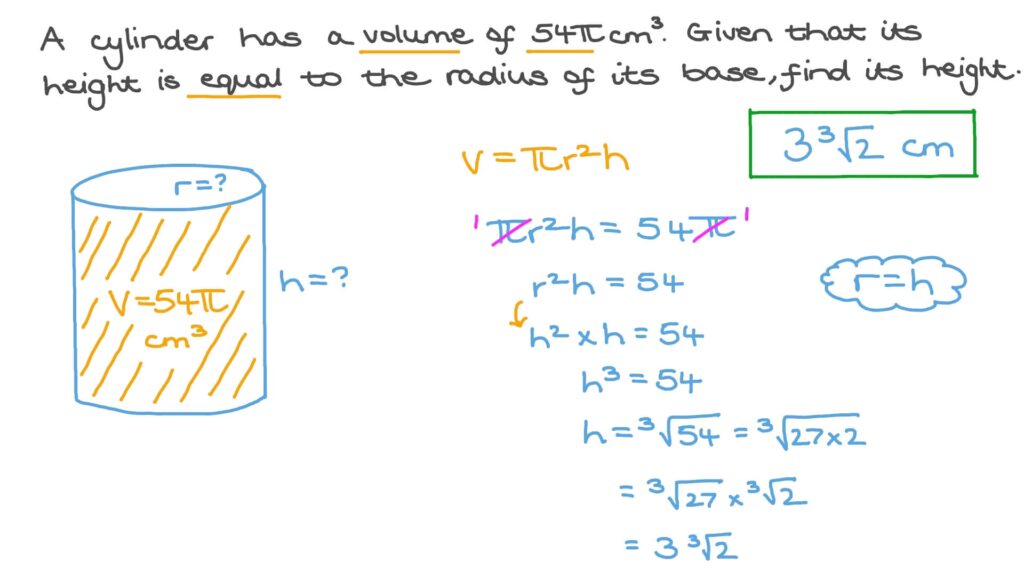 A cylinder has a volume of 54π cm³. Given that its
height is equal to the radius of its base, find its height.
3 ³√2 cm
V = πr²h
r = ?
¹ πr²h = 54π ¹
h = ?
r²h = 54
r = h
V = 54π
cm³
h² × h = 54
h³ = 54
h = ³√54 = ³√27×2
= ³√27 × ³√2
= 3 ³√2